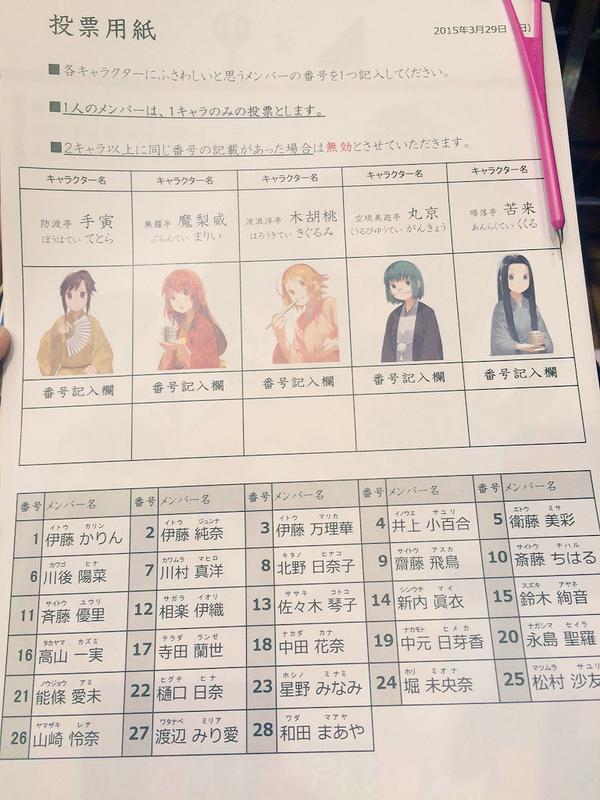 投票用紙
2015年3月29日(日)
■各キャラクターにふさわしいと思うメンバーの番号を1つ記入してください。
■1人のメンバーは、1キャラのみの投票とします。
■2キャラ以上に同じ番号の記載があった場合は無効とさせていただきます。
キャラクター名 キャラクター名 キャラクター名 キャラクター名 キャラクター名
防波亭 手寅 蕪羅亭 魔梨威 波浪浮亭 木胡桃 空琉美遊亭 丸京 暗落亭 苦来
ぼうはてい てとら ぶらんてい まりい はろうきてい きぐるみ くうるびゆうてい がんきょう あんらくてい くくる
番号記入欄 番号記入欄 番号記入欄 番号記入欄 番号記入欄
番号 メンバー名 番号 メンバー名 番号 メンバー名 番号 メンバー名 番号 メンバー名
イトウ カリン イトウ ジュンナ イトウ マリカ イノウエ サユリ エトウ ミサ
1 伊藤 かりん 2 伊藤 純奈 3 伊藤 万理華 4 井上 小百合 5 衛藤 美彩
カワゴ ヒナ カワムラ マヒロ キタノ ヒナコ サイトウ アスカ サイトウ チハル
6 川後 陽菜 7 川村 真洋 8 北野 日奈子 9 齋藤 飛鳥 10 斎藤 ちはる
サイトウ ユウリ サガラ イオリ ササキ コトコ シンウチ マイ スズキ アヤネ
11 斉藤 優里 12 相楽 伊織 13 佐々木 琴子 14 新内 眞衣 15 鈴木 絢音
タカヤマ カズミ テラダ ランゼ ナカダ カナ ナカモト ヒメカ ナガシマ セイラ
16 高山 一実 17 寺田 蘭世 18 中田 花奈 19 中元 日芽香 20 永島 聖羅
ノウジョウ アミ ヒグチ ヒナ ホシノ ミナミ ホリ ミオナ マツムラ サユ
21 能條 愛未 22 樋口 日奈 23 星野 みなみ 24 堀 未央奈 25 松村 沙友
ヤマザキ レナ ワタナベ ミリア ワダ マアヤ
26 山﨑 怜奈 27 渡辺 みり愛 28 和田 まあや